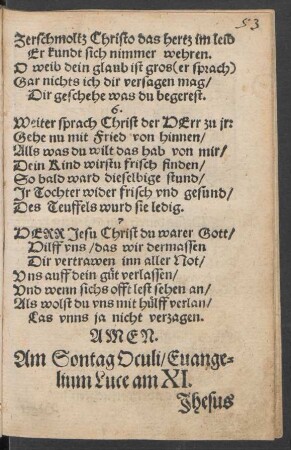 53
Zerschmoltz Christo das hertz im leid
Er kundt sich nimmer wehren.
O weib dein glaub ist gros(er sprach)
Gar nichts ich dir versagen mag/
Dir geschehe was du begerest.
6.
Weiter sprach Christ der HErr zu jr:
Gehe nu mit Fried von hinnen/
Alls was du wilt das hab von mir/
Dein Kind wirstu frisch finden/
So bald ward dieselbige stund/
Jr Tochter wider frisch vnd gesund/
Des Teuffels wurd sie ledig.
7
HERR Jesu Christ du warer Gott/
Hilff vns/das wir dermassen
Dir vertrawen inn aller Not/
Vns auff dein güt verlassen/
Vnd wenn sichs offt lest sehen an/
Als wolst du vns mit hülff verlan/
Las vnns ja nicht verzagen.
AMEN.
Am Sontag Oculi/Euange-
lium Luce am XI.
Jhesus